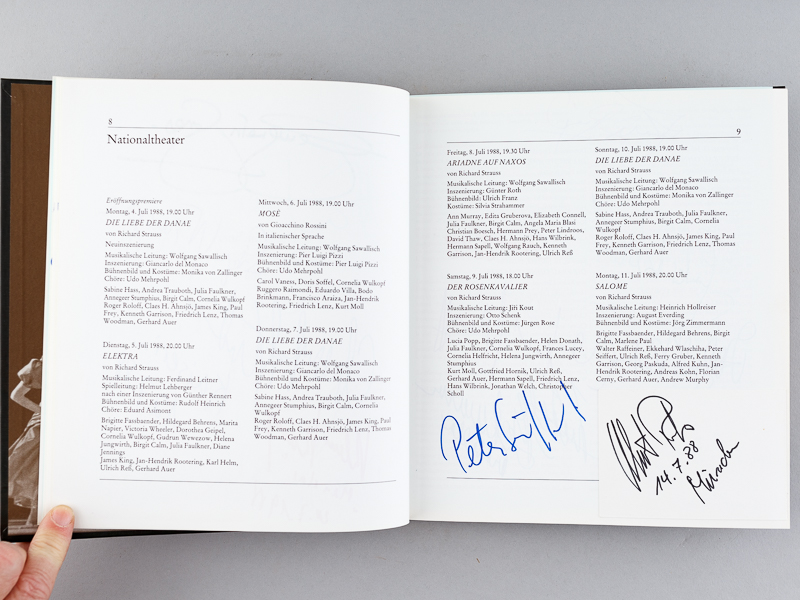 8
Nationaltheater
Eröffnungspremiere
Montag, 4. Juli 1988, 19.00 Uhr
DIE LIEBE DER DANAE
von Richard Strauss
Neuinszenierung
Musikalische Leitung: Wolfgang Sawallisch
Inszenierung: Giancarlo del Monaco
Bühnenbild und Kostüme: Monika von Zallinger
Chöre: Udo Mehrpohl
Sabine Hass, Andrea Trauboth, Julia Faulkner,
Annegeer Stumphius, Birgit Calm, Cornelia Wulkopf
Roger Roloff, Claes H. Ahnsjö, James King, Paul
Frey, Kenneth Garrison, Friedrich Lenz, Thomas
Woodman, Gerhard Auer
Dienstag, 5. Juli 1988, 20.00 Uhr
ELEKTRA
von Richard Strauss
Musikalische Leitung: Ferdinand Leitner
Spielleitung: Helmut Lehberger
nach einer Inszenierung von Günther Rennert
Bühnenbild und Kostüme: Rudolf Heinrich
Chöre: Eduard Asimont
Brigitte Fassbaender, Hildegard Behrens, Marita
Napier, Victoria Wheeler, Dorothea Geipel,
Cornelia Wulkopf, Gudrun Wewezow, Helena
Jungwirth, Birgit Calm, Julia Faulkner, Diane
Jennings
James King, Jan-Hendrik Rootering, Karl Helm,
Ulrich Reß, Gerhard Auer
Mittwoch, 6. Juli 1988, 19.00 Uhr
MOSÈ
von Gioacchino Rossini
In italienischer Sprache
Musikalische Leitung: Wolfgang Sawallisch
Inszenierung: Pier Luigi Pizzi
Bühnenbild und Kostüme: Pier Luigi Pizzi
Chöre: Udo Mehrpohl
Carol Vaness, Doris Soffel, Cornelia Wulkopf
Ruggero Raimondi, Eduardo Villa, Bodo
Brinkmann, Francisco Araiza, Jan-Hendrik
Rootering, Friedrich Lenz, Kurt Moll
Donnerstag, 7. Juli 1988, 19.00 Uhr
DIE LIEBE DER DANAE
von Richard Strauss
Musikalische Leitung: Wolfgang Sawallisch
Inszenierung: Giancarlo del Monaco
Bühnenbild und Kostüme: Monika von Zallinger
Chöre: Udo Mehrpohl
Sabine Hass, Andrea Trauboth, Julia Faulkner,
Annegeer Stumphius, Birgit Calm, Cornelia
Wulkopf
Roger Roloff, Claes H. Ahnsjö, James King, Paul
Frey, Kenneth Garrison, Friedrich Lenz, Thomas
Woodman, Gerhard Auer
9
Freitag, 8. Juli 1988, 19.30 Uhr
ARIADNE AUF NAXOS
von Richard Strauss
Musikalische Leitung: Wolfgang Sawallisch
Inszenierung: Günter Roth
Bühnenbild: Ulrich Franz
Kostüme: Silvia Strahammer
Ann Murray, Edita Gruberova, Elizabeth Connell,
Julia Faulkner, Birgit Calm, Angela Maria Blasi
Christian Boesch, Hermann Prey, Peter Lindroos,
David Thaw, Claes H. Ahnsjö, Hans Wilbrink,
Hermann Sapell, Wolfgang Rauch, Kenneth
Garrison, Jan-Hendrik Rootering, Ulrich Reß
Samstag, 9. Juli 1988, 18.00 Uhr
DER ROSENKAVALIER
von Richard Strauss
Musikalische Leitung: Jiří Kout
Inszenierung: Otto Schenk
Bühnenbild und Kostüme: Jürgen Rose
Chöre: Udo Mehrpohl
Lucia Popp, Brigitte Fassbaender, Helen Donath,
Julia Faulkner, Cornelia Wulkopf, Frances Lucey,
Cornelia Helfricht, Helena Jungwirth, Annegeer
Stumphius
Kurt Moll, Gottfried Hornik, Ulrich Reß,
Gerhard Auer, Hermann Sapell, Friedrich Lenz,
Hans Wilbrink, Jonathan Welch, Christopher
Scholl
Sonntag, 10. Juli 1988, 19.00 Uhr
DIE LIEBE DER DANAE
von Richard Strauss
Musikalische Leitung: Wolfgang Sawallisch
Inszenierung: Giancarlo del Monaco
Bühnenbild und Kostüme: Monika von Zallinger
Chöre: Udo Mehrpohl
Sabine Hass, Andrea Trauboth, Julia Faulkner,
Annegeer Stumphius, Birgit Calm, Cornelia
Wulkopf
Roger Roloff, Claes H. Ahnsjö, James King, Paul
Frey, Kenneth Garrison, Friedrich Lenz, Thomas
Woodman, Gerhard Auer
Montag, 11. Juli 1988, 20.00 Uhr
SALOME
von Richard Strauss
Musikalische Leitung: Heinrich Hollreiser
Inszenierung: August Everding
Bühnenbild und Kostüme: Jörg Zimmermann
Brigitte Fassbaender, Hildegard Behrens, Birgit
Calm, Marlene Paul
Walter Raffeiner, Ekkehard Wlaschiha, Peter
Seiffert, Ulrich Reß, Ferry Gruber, Kenneth
Garrison, Georg Paskuda, Alfred Kuhn, Jan-
Hendrik Rootering, Andreas Kohn, Florian
Cerny, Gerhard Auer, Andrew Murphy
Peter Seiffert
14.7.88
München